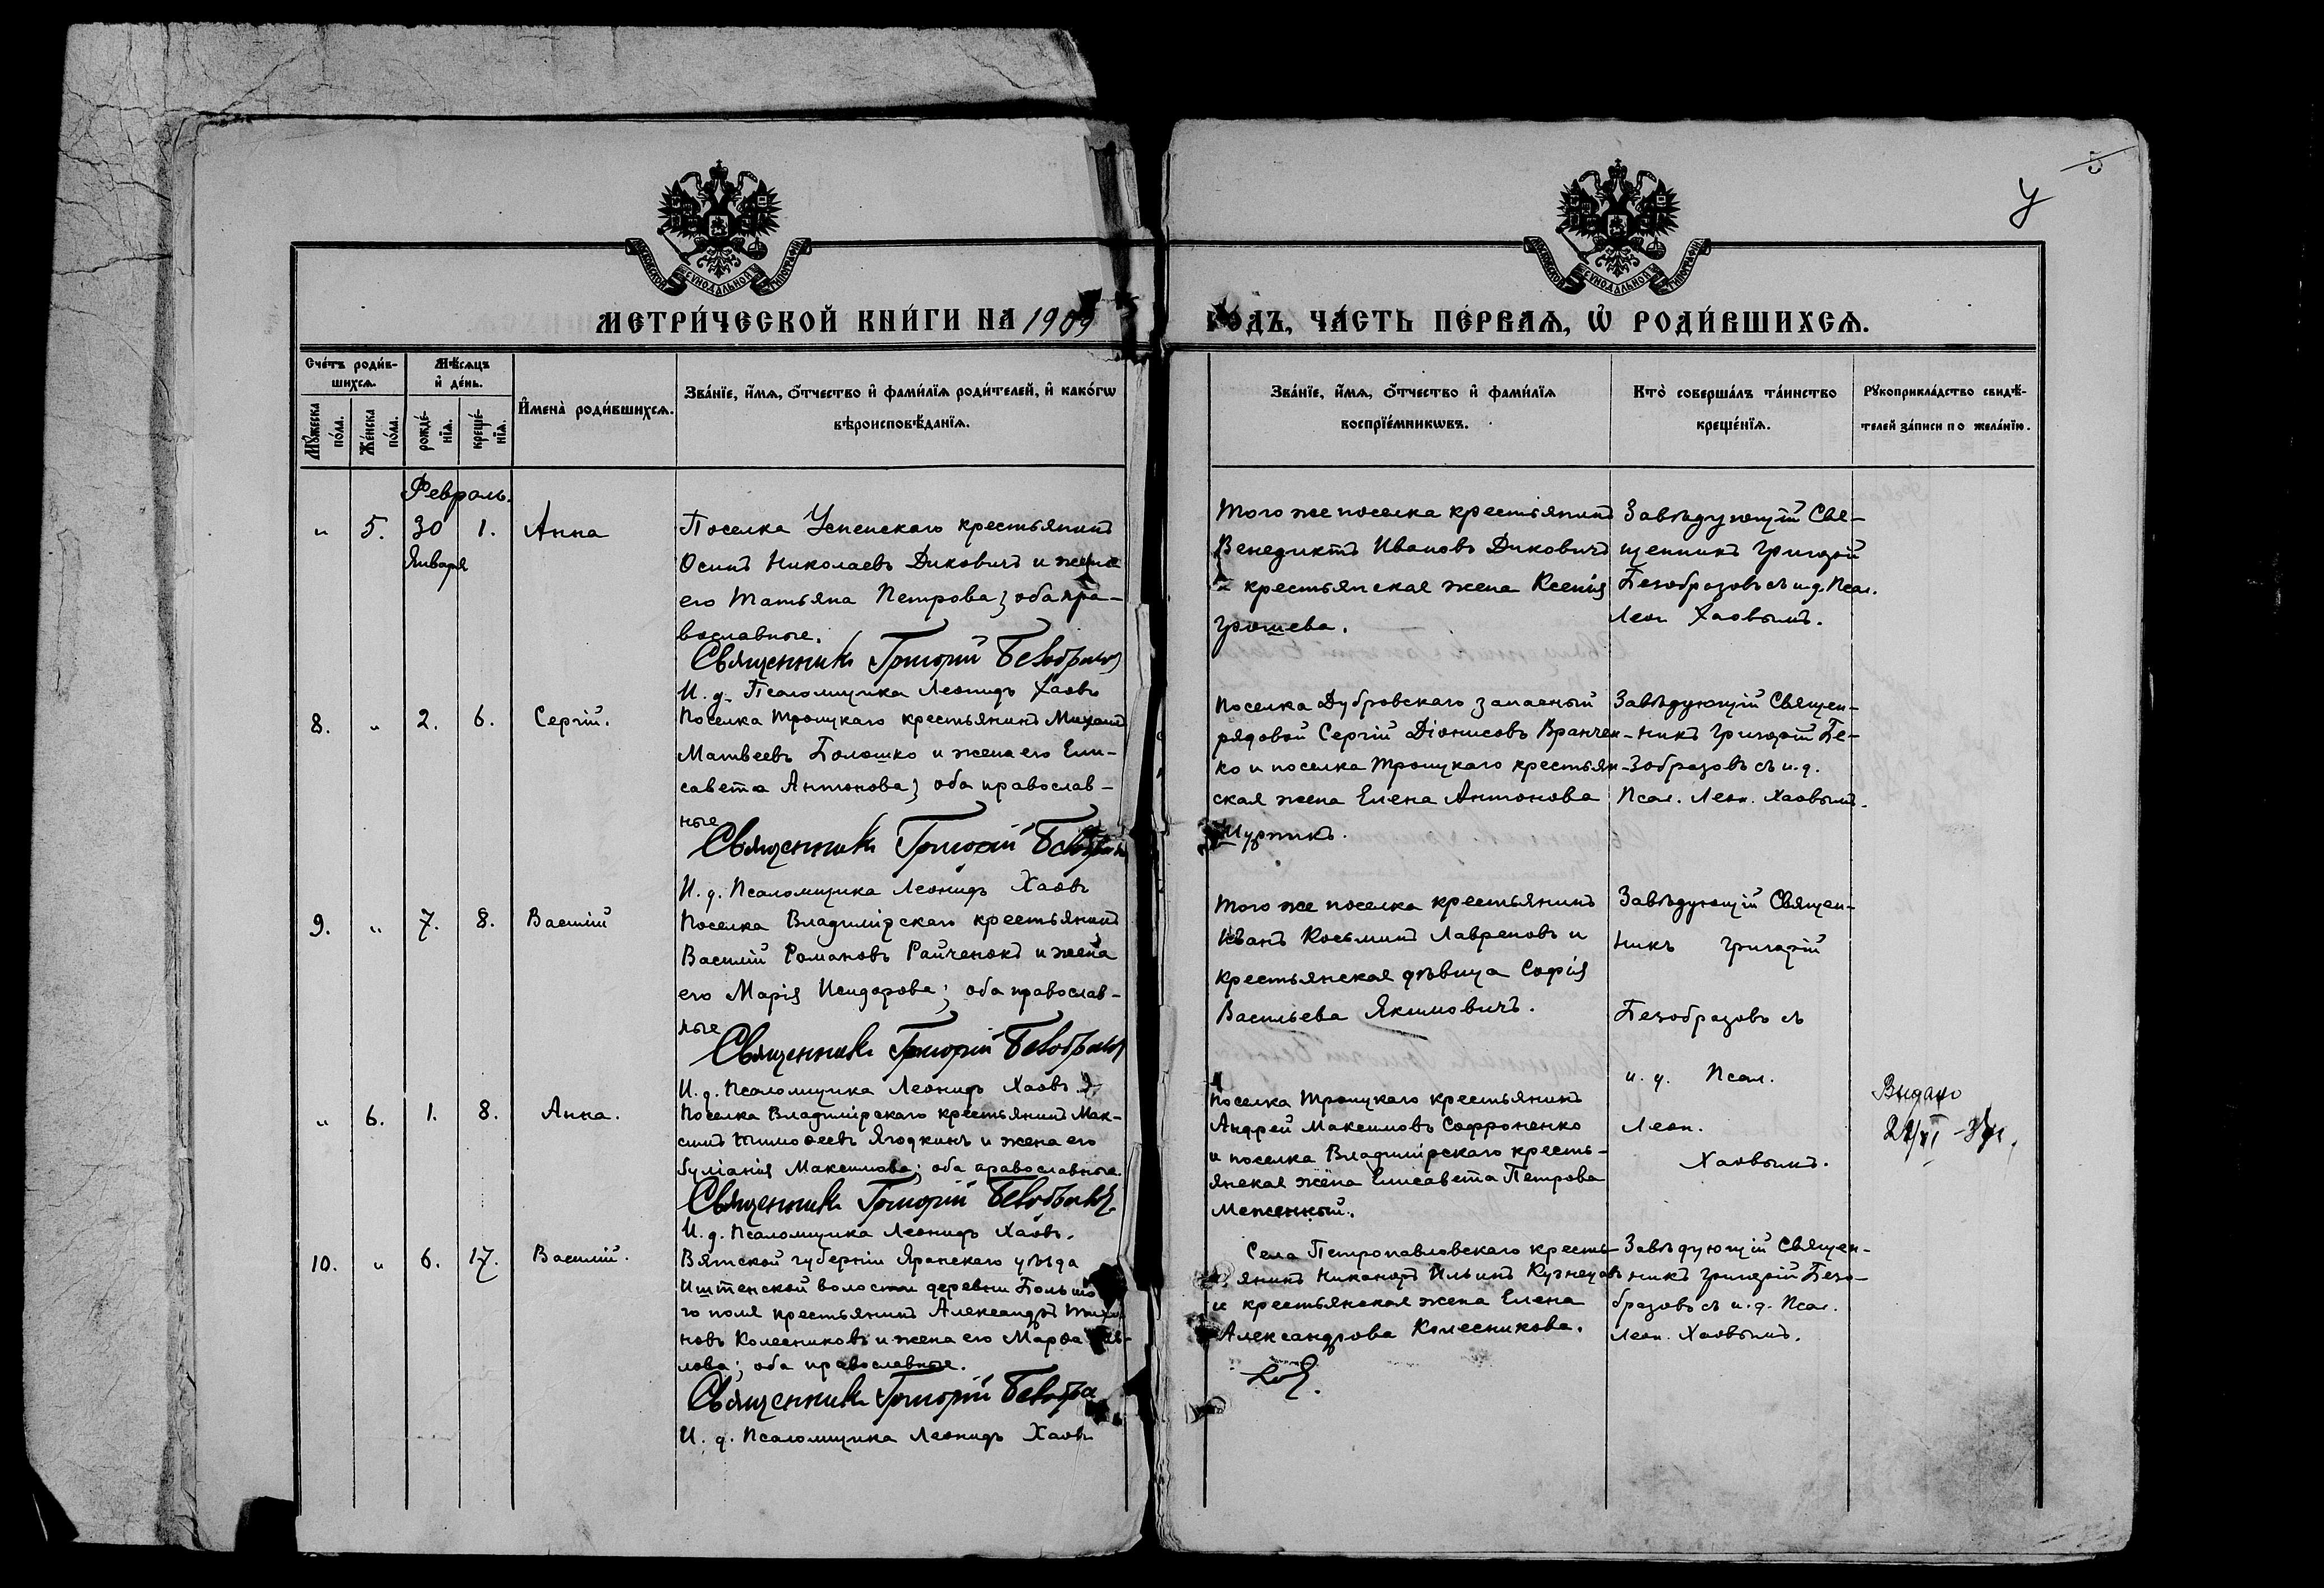 5
У
МОСКОВСКОЙ СѴНОДАЛЬНОЙ ТИПОГРАФІИ
МОСКОВСКОЙ СѴНОДАЛЬНОЙ ТИПОГРАФІИ
МЕТРИ́ЧЕСКОЙ КНИ́ГИ НА 1909
ГОДЪ, ЧА́СТЬ ПЕ́РВАѦ, Ѽ РОДИ́ВШИХСѦ.
Сче́тъ роди́в-
шихсѧ.
Мꙋ́жеска по́ла.
Же́нска по́ла.
Мѣ́сѧцъ
и҆ де́нь.
рожде́-
нїѧ.
креще́-
нїѧ.
И҆мена̀ роди́вшихсѧ.
Зва́нїе, и҆́мѧ, ѻ҆́тчество и҆ фами́лїѧ роди́телей, и҆ како́гѡ
вѣроисповѣ́данїѧ.
Зва́нїе, и҆́мѧ, ѻ҆́тчество и҆ фами́лїѧ
воспрїе́мникѡвъ.
Кто̀ соверша́лъ та́инство
креще́нїѧ.
Рꙋкоприкла́дство свидѣ́-
телей за́писи по жела́нїю.
Февраль.
" 5. 30 1. Анна
Января
Поселка Успенскаго крестьянинъ
Осипъ Николаевъ Диковичъ и жена
его Татьяна Петрова; оба пра-
вославные.
Священникъ Григорій Безобразовъ
И. д. Псаломщика Леонидъ Хаовъ
Того же поселка крестьянинъ
Венедиктъ Ивановъ Диковичъ
и крестьянская жена Ксенія
Грошева.
Завѣдующій Свя-
щенникъ Григорій
Безобразовъ съ и.д. Псал.
Леон. Хаовымъ.
8. " 2. 6. Сергій.
Поселка Троицкаго крестьянинъ Михаилъ
Матвеевъ Болошко и жена его Ели-
савета Антонова; оба православ-
ные
Священникъ Григорій Безобразовъ
И. д. Псаломщика Леонидъ Хаовъ
Поселка Дубровскаго запасный
рядовой Сергій Діонисовъ Вранчен-
ко и поселка Троицкаго крестьян-
ская жена Елена Антонова
Завѣдующій Священ-
никъ Григорій Бе-
зобразовъ съ и.д.
Псал. Леон. Хаовымъ.
9. " 7. 8. Василій
Поселка Владимірскаго крестьянинъ
Василій Романовъ Райченокъ и жена
его Марія Исидорова; оба православ-
ные
Священникъ Григорій Безобразовъ
И. д. Псаломщика Леонидъ Хаовъ
Того же поселка крестьянинъ
Иванъ Косьминъ Лавреновъ и
крестьянская дѣвица Софія
Васильева Якимовичъ.
Завѣдующій Священ-
никъ Григорій
Безобразовъ съ
и. д. Псал.
Леон.
Хаовымъ.
" 6. 1. 8. Анна.
Поселка Владимірскаго крестьянинъ Мак-
симъ Тимоѳеевъ Ягодкинъ и жена его
Іуліанія Максимова; оба православные.
Священникъ Григорій Безобразовъ
И. д. Псаломщика Леонидъ Хаовъ.
Поселка Троицкаго крестьянинъ
Андрей Максимовъ Софроненко
и поселка Владимірскаго кресть-
янская жена Елисавета Петрова
Меженный.
Выдано
10. " 6. 17. Василій.
Вятской губерніи Яранскаго уѣзда
волости деревни Большо
го поля крестьянинъ Александръ
новъ Колесниковъ и жена его Марѳа
лова; оба православные.
Священникъ Григорій Безобра
И. д. Псаломщика Леонидъ Хаовъ
Села Петропавловскаго кресть-
янинъ Никаноръ Ильинъ Кузнецовъ
и крестьянская жена Елена
Александрова Колесникова.
Завѣдующій Священ-
никъ Григорій Безо-
бразовъ съ и.д. Псал.
Леон. Хаовымъ.